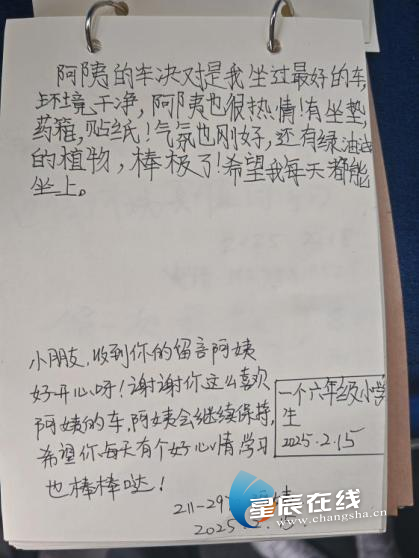 阿姨的车决对是我坐过最好的车,
环境干净,阿姨也很热情!有坐垫,
药箱,贴纸!气氛也刚好,还有绿油油
的植物,棒极了!希望我每天都能
坐上。
小朋友,收到你的留言阿姨
好开心呀!谢谢你这么喜欢
阿姨的车,阿姨会继续保持,
希望你每天有个好心情学习
也棒棒哒!
一个六年级小学
生
2025.2.15
211-29
2025
星辰在线
www.changsha.cn